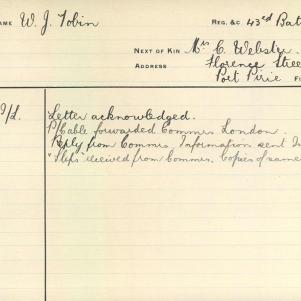 NAME W. J. Tobin REG. &C. 43rd Bat
NEXT OF KIN Mrs C. Webster.
ADDRESS Florence Stree
Port Pirie F
9/1. Letter acknowledged.
P/Cable forwarded Commrs London.
Reply from Commrs. Information sent In
"Slips" received from Commrs. Copies of same